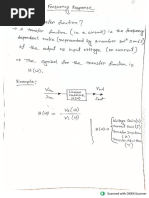 Frequency Response
transfer function?
⇒ A transfer function (in a circuit) is the frequency
dependent ratio (represented by a number
of the output to input voltage (or current)
⇒ The symbol for the transfer function is
H(ω).
Example:-
Vin
Iin
Linear
Vout
Iout
H(ω) = V₀(ω)
Vᵢ(ω)
H(ω) =
Voltage Gain
Current Gain
Transfer
Transfer
Scanned with CamScanner